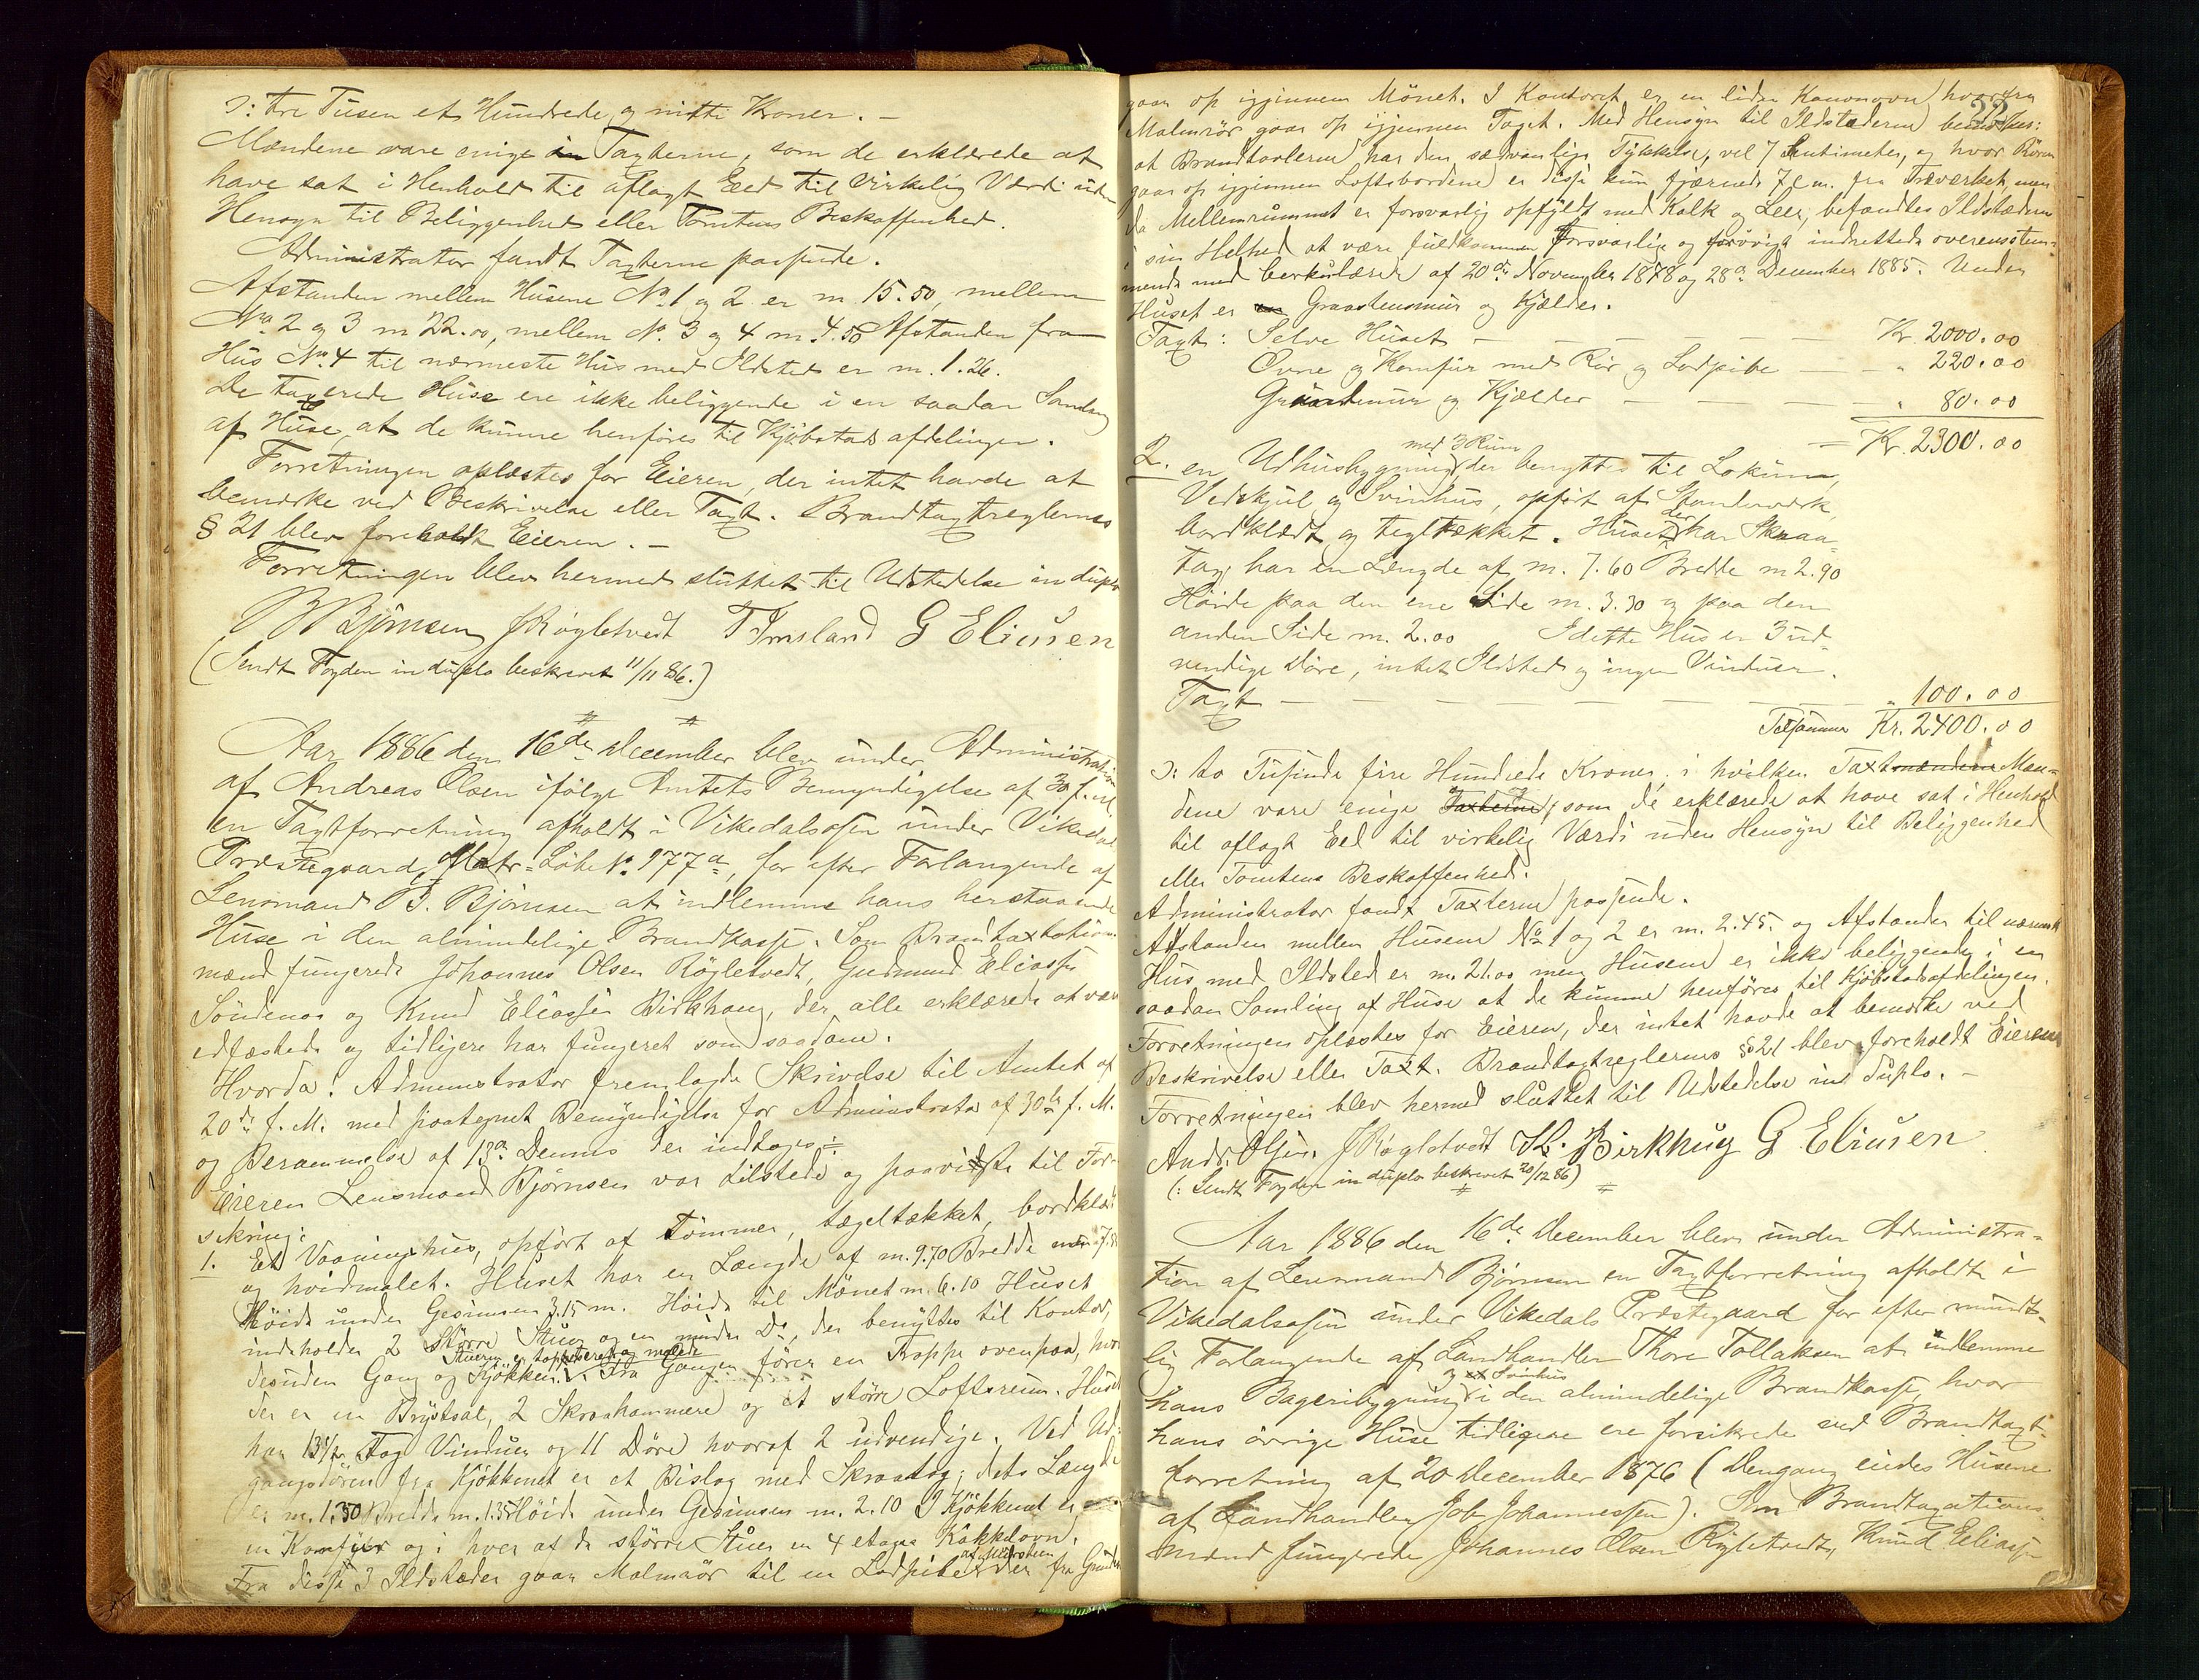 ɔ: tre Tusen et Hundrede og nitti Kroner. –
Mændene vare enige i Taxterne, som de erklærede at
have sat i Henhold til aflagt Eed til virkelig Værdi uden
Hensyn til Beliggenhed eller Tomtens Beskaffenhed.
Administrator fandt Taxterne passende.
Afstanden mellem Husene No. 1 og 2 er m. 15.50, mellem
No. 2 og 3 m 22.00, mellem No. 3 og 4 m 4.50 Afstanden fra
Hus No. 4 til nærmeste Hus med Ildsted er m. 1.26.
De taxerede Huse ere ikke beliggende i en saadan Samling
af Huse, at de kunne henføres til Kjøbstadsafdelingen.
Forretningen oplæstes for Eieren, der intet havde at
bemærke ved Beskrivelse eller Taxt. Brandtaxtreglernes
§ 21 blev foreholdt Eieren. –
Forretningen blev hermed sluttet til Udstedelse in duplo
B Bjørnsen JRøgletvedt T Imsland G Eliasen
(Sendt Fogden in duplo beskrevet 11/11 86.)
Aar 1886 den 16de December blev under Administration
af Andreas Olsen ifølge Amtets Bemyndigelse af 30 f. M.
en Taxtforretning afholdt i Vikedalsosen under Vikedal
Præstegaard, Matr. Løbe No. 177a, for efter Forlangende af
Lensmand B. Bjørnsen at indlemme hans herstaaende
Huse i den almindelige Brandkasse. Som Brandtaxtations-
mænd fungerede Johannes Olsen Røgletvedt, Gudmund Eliassen
Søndenaa og Knud Eliassen Birkhaug, der alle erklærede at være
edfæstede og tidligere har fungeret som saadane.
Hvorda: Administrator fremlagde Skrivelse til Amtet af
20de f. M. med paategnet Bemyndigelse for Administrator af 30te f. M.
og Berammelse af 13de Dennes der indtages:
Eieren Lensmand Bjørnsen var tilstede og paaviste til For-
sikring:
1. Et Vaaningshus, opført af Tømmer, tægeltækket, bordklædt
og hvidmalet. Huset har en Længde af m. 9.70 Bredde m 7.
Høide under Gesimsen 3.15 m. Høide til Mønet m. 6.10 Huset
indeholder 2 Større Stuer og en mindre Do, der benyttes til Kontor,
Stuerne er tapetseret og malede
desuden Gang og Kjøkken. Fra Gangen fører en Trappe ovenpaa, hvor
der er en Brystsal, 2 Skraakammere og et større Loftsrum. Huset
har 13 1/2 Fag Vinduer og 11 Døre hvoraf 2 udvendige. Ved Ud-
gangsdøren fra Kjøkkenet er et Bislag med Skraatag; dets Længde
er m. 1.30 Bredde m. 1.35 Høide under Gesimsen m. 2.10 I Kjøkkenet er
en Komfyr og i hver af de større Stuer en 4 etages Kakkelovn.
af Mursten
Fra disse 3 Ildstæder gaar Malmrør til en Lodpibe der fra Grunden
33
gaar op igjennem Mønet. I Kontoret er en liden Kanonovn hvorfra
Malmrør gaar op igjennem Taget. Med Hensyn til Ildstæderne bemærkes:
at Brandtavlerne har den sædvanlige Tykkelse, vel 7 Centimeter, og hvor Rørene
gaar op igjennem Loftsbordene er disse kun fjærnede 7 c.m. fra Træverket, men
da Mellemrummet er forsvarlig opfyldt med Kalk og Leer, befandtes Ildstæderne
i sin Helhed at være fuldkommen forsvarlige og forøvrigt indrettede overensstem-
mende med Cerkulærer af 20de November 1878 og 28de December 1885. Under
Huset er Graastensmur og Kjælder.
Taxt: Selve Huset – – – – – Kr. 2000.00
Ovne og Komfur med Rør og Lodpibe – – " 220.00
Graastenmur og Kjælder – – – – " 80.00
= Kr. 2300.00
med 3 Rum
2. en Udhusbygning der benyttes til Lokum,
Vedskjul og Svinhus, opført af Standværk,
bordklædt og tegltækket. Huset der har Skraa-
tag, har en Længde af m. 7.60 Bredde m 2.90
Høide paa den ene Side m. 3.30 og paa den
anden Side m. 2.00 I dette Hus er 3 ud-
vendige Døre, intet Ildsted og ingen Vinduer.
Taxt – – – – – – " 100.00
Tilsammen Kr. 2400.00
ɔ: to Tusinde fire Hundrede Kroner, i hvilken Taxt Mæn-
dene vare enige Taxterne, som de erklærede at have sat i Henhold
til aflagt Eed til virkelig Værdi uden Hensyn til Beliggenhed
eller Tomtens Beskaffenhed.
Administrator fandt Taxterne passende.
Afstanden mellem Husene No 1 og 2 er m. 2.45. og Afstanden til nærmeste
Hus med Ildsted er m. 21.00 men Husene er ikke beliggende i en
saadan Samling af Huse at de kunne henføres til Kjøbstadsafdelingen.
Forretningen oplæstes for Eieren, der intet havde at bemærke ved
Beskrivelse eller Taxt. Brandtaxtreglernes § 21 blev foreholdt Eieren
Forretningen blev hermed sluttet til Udstedelse in duplo. –
Andr. Olsen. JRøgletvedt K. Birkhug G Eliasen
(: Sendt Fogden in duplo beskrevet 20/12 86)
Aar 1886 den 16de December blev under Administra-
tion af Lensmand Bjørnsen en Taxtforretning afholdt i
Vikedalsosen under Vikedals Præstegaard for efter mundt-
lig Forlangende af Landhandler Thore Tollaksen at indlemme
og Svinhus
hans Bageribygning i den almindelige Brandkasse, hvor
hans øvrige Huse tidligere ere forsikrede ved Brandtaxt-
forretning af 20 December 1876 (Dengang eiedes Husene
af Landhandler Job Johannessen). Som Brandtaxations-
mænd fungerede Johannes Olsen Røgletvedt, Knud Eliassen